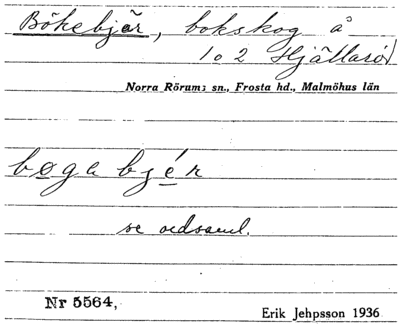 Bökebjär, bokskog å
1 o 2 Hjällaröd
Norra Rörums sn., Frosta hd., Malmöhus län
bøgabjér
se ordsaml.
Nr 5564,
Erik Jehpsson 1936